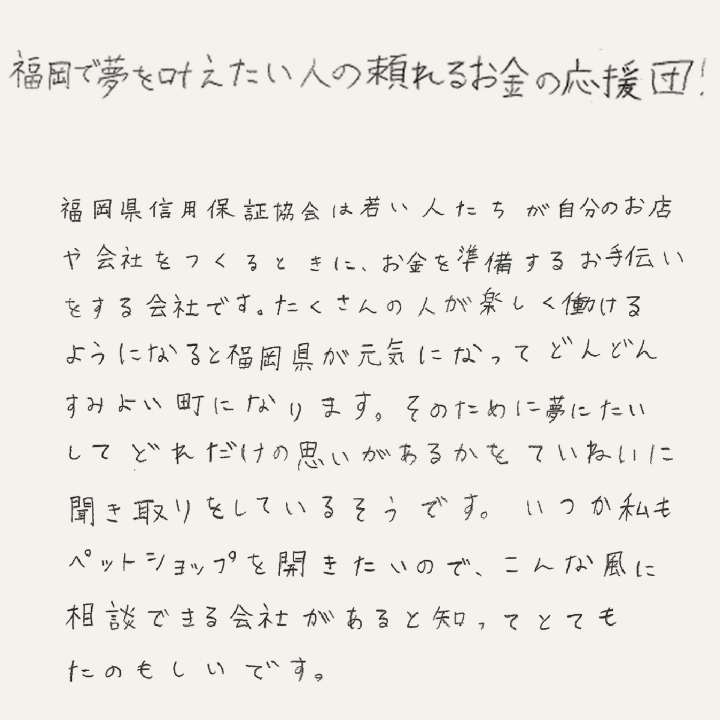 福岡で夢を叶えたい人の頼れるお金の応援団!
福岡県信用保証協会は若い人たちが自分のお店
や会社をつくるときに、お金を準備するお手伝い
をする会社です。たくさんの人が楽しく働ける
ようになると福岡県が元気になってどんどん
すみよい町になります。そのために夢にたい
してどれだけの思いがあるかをていねいに
聞き取りをしているそうです。いつか私も
ペットショップを開きたいので、こんな風に
相談できる会社があると知ってとても
たのもしいです。